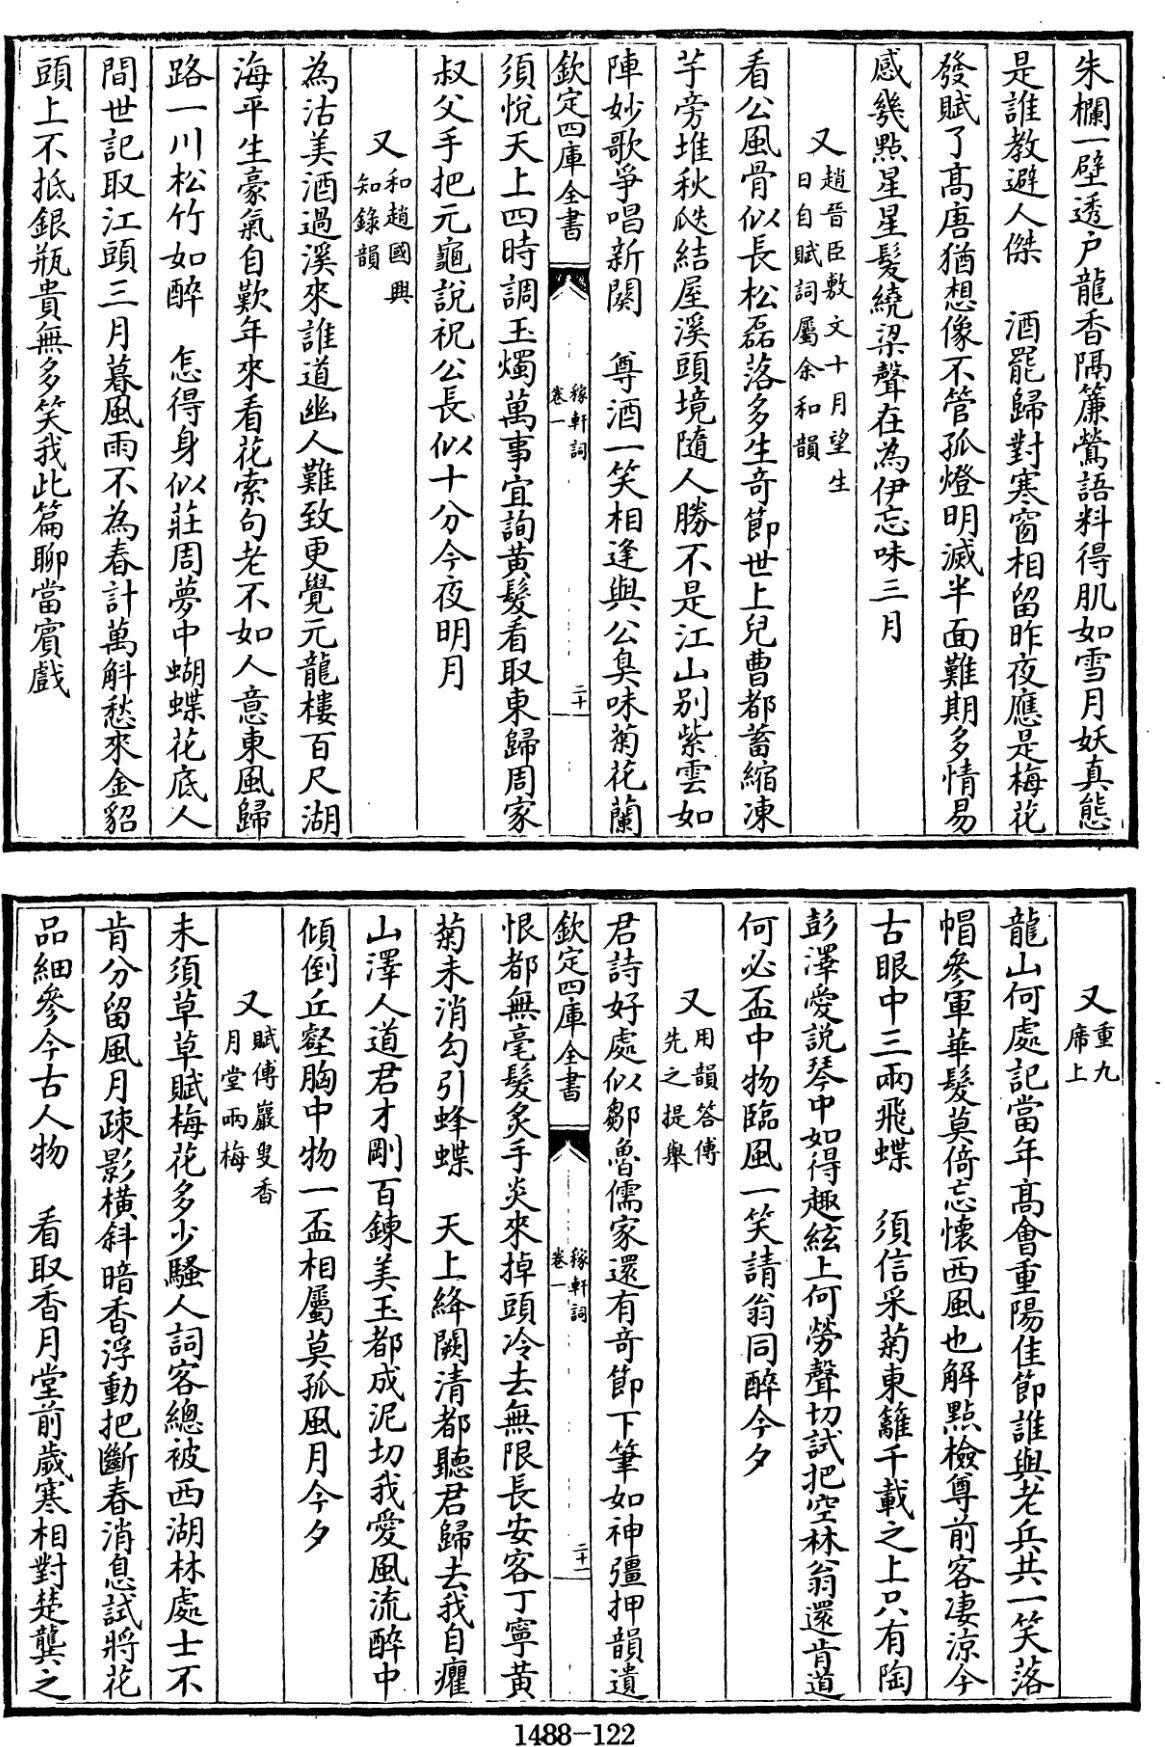 朱欄一壁透户龍香隔簾鶯語料得肌如雪月妖真態
是誰教避人傑　酒罷歸對寒窗相留昨夜應是梅花
發賦了髙唐猶想像不管孤燈明滅半面難期多情易
感幾點星星髪繞梁聲在為伊忘味三月
又趙晉臣敷文十月望生
日自賦詞屬余和韻
看公風骨似長松磊落多生竒節世上兒曹都蓄縮凍
芋旁堆秋瓞結屋溪頭境隨人勝不是江山别紫雲如
陣妙歌爭唱新闋　尊酒一笑相逢與公臭味菊花蘭
欽定四庫全書
稼軒詞
卷一
二十
須悦天上四時調玉燭萬事宜詢黄髮看取東歸周家
叔父手把元龜説祝公長似十分今夜明月
又和趙國興
知録韻
為沽美酒過溪來誰道幽人難致更覺元龍樓百尺湖
海平生豪氣自歎年來看花索句老不如人意東風歸
路一川松竹如醉　怎得身似莊周夢中蝴蝶花底人
間世記取江頭三月暮風雨不為春計萬斛愁來金貂
頭上不抵銀瓶貴無多笑我此篇聊當賓戲
又重九
席上
龍山何處記當年髙會重陽佳節誰與老兵共一笑落
帽參軍華髮莫倚忘懷西風也解點檢尊前客凄涼今
古眼中三兩飛蝶　須信采菊東籬千載之上只有陶
彭澤愛説琴中如得趣絃上何勞聲切試把空林翁還肯道
何必盃中物臨風一笑請翁同醉今夕
又用韻答傅
先之提舉
君詩好處似鄒魯儒家還有竒節下筆如神彊押韻遺
欽定四庫全書
稼軒詞
卷一
二十一
恨都無毫髮炙手炎來掉頭冷去無限長安客丁寧黄
菊未消勾引蜂蝶　天上絳闕清都聽君歸去我自癯
山澤人道君才剛百鍊美玉都成泥切我愛風流醉中
傾倒丘壑胸中物一盃相屬莫孤風月今夕
又賦傅巖叟香
月堂兩梅
未須草草賦梅花多少騷人詞客總被西湖林處士不
肯分留風月疎影橫斜暗香浮動把斷春消息試將花
品細參今古人物　看取香月堂前歲寒相對楚龔之
1488-122